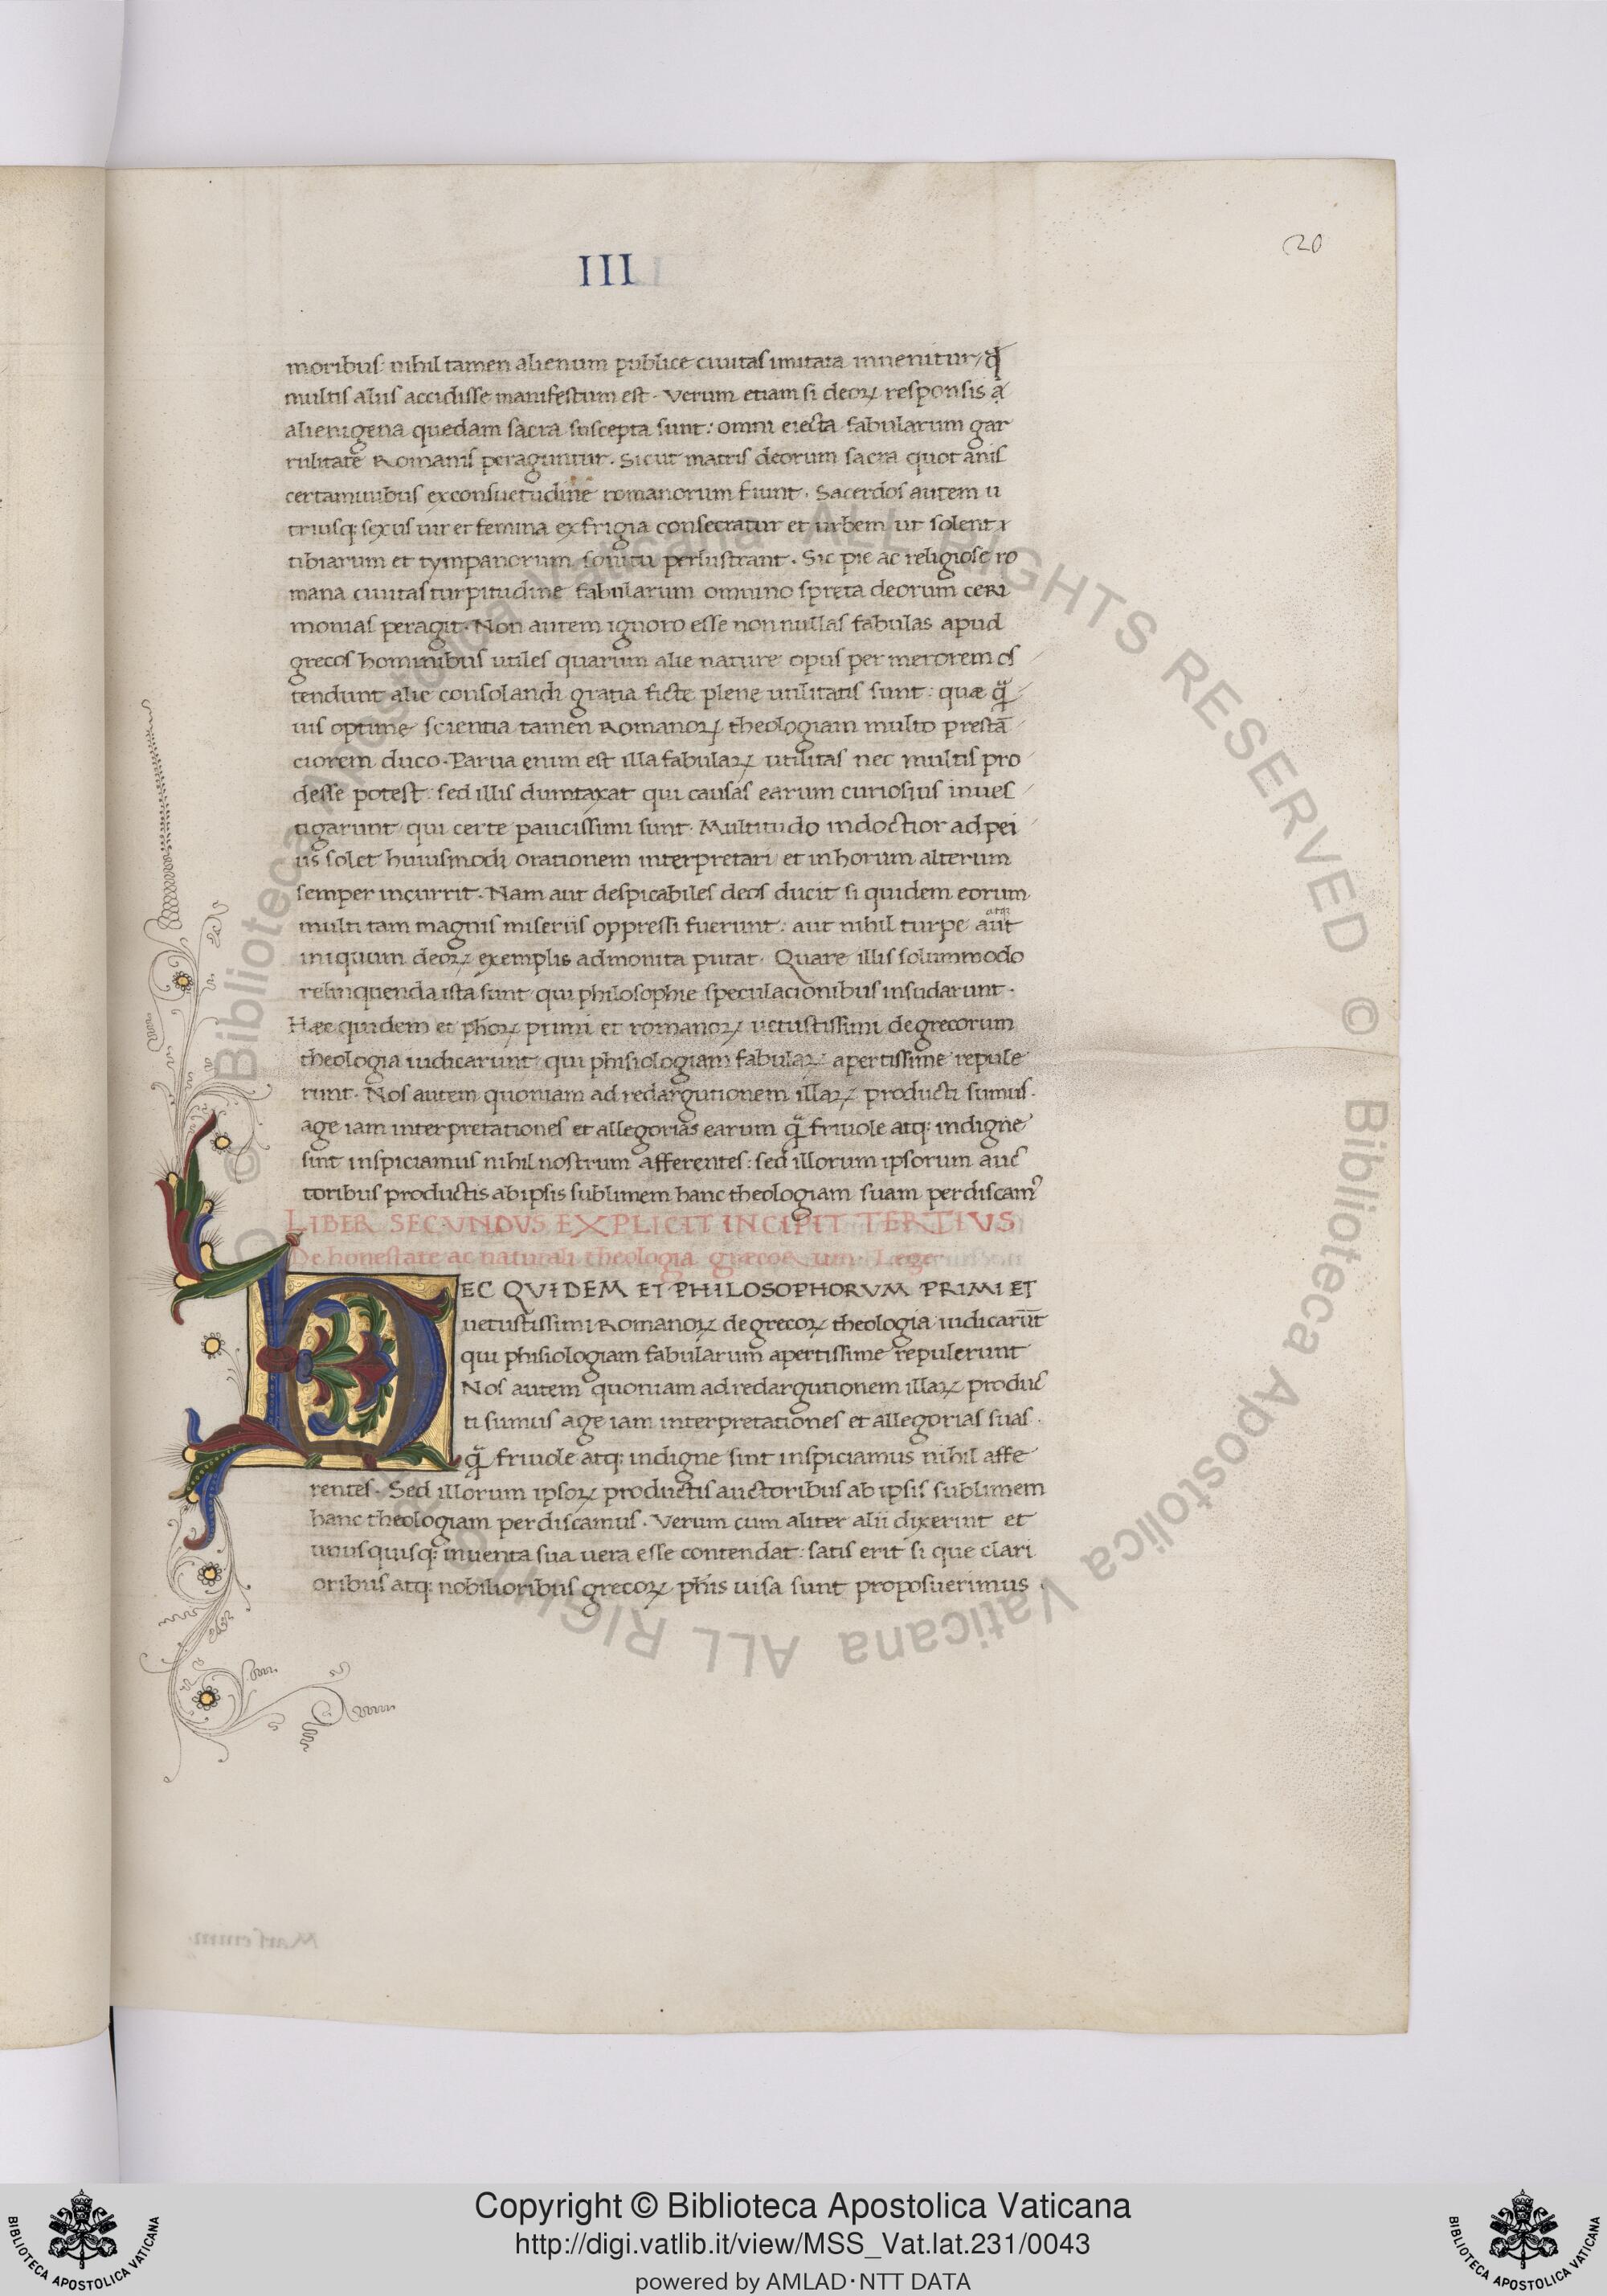 20
III
moribus: nihil tamen alienum publice ciuitas imitata inuenitur/ qd̄
multis aliis accidisse manifestum est. Verum etiam si deoꝝ responsis
alienigena quedam sacra suscepta sunt: omni eiecta fabularum gar
rulitate Romanis peraguntur. Sicut matris deorum sacra quot annis
certaminibus ex consuetudine romanorum fiunt. Sacerdos autem u
triusq; sexus uir et femina ex frigia consecratur et urbem ut solent
tibiarum et tympanorum sonitu perlustrant. Sic pie ac religiose ro
mana ciuitas turpitudine fabularum omnino spreta deorum ceri
monias peragit. Non autem ignoro esse non nullas fabulas apud
grecos hominibus utiles quarum alie nature opus per merorem os
tendunt alie consolandi gratia ficte plene utilitatis sunt: quæ qᷓ
uis optime scientia tamen Romanoꝝ theologiam multo prestā
ciorem duco. Parua enim est illa fabulaꝝ utilitas nec multis pro
desse potest: sed illis dumtaxat qui causas earum curiosius inues
tigarunt qui certe paucissimi sunt. Multitudo indoctior ad pei
us solet huiusmodi orationem interpretari et in horum alterum
semper incurrit. Nam aut despicabiles deos ducit si quidem eorum
multi tam magnis miseriis oppressi fuerunt: aut nihil turpe aut
atq;
iniquum deoꝝ exemplis admonita putat. Quare illis solummodo
relinquenda ista sunt qui philosophie speculacionibus insudarunt.
Hæc quidem et ph̄oꝝ primi et romanoꝝ uetustissimi de grecorum
theologia iudicarunt qui phisiologiam fabulaꝝ apertissime repule
runt. Nos autem quoniam ad redargutionem illaꝝ producti sumus.
age iam interpretationes et allegorias earum qᷓ friuole atq; indigne
sint inspiciamus nihil nostrum afferentes: sed illorum ipsorum auc
toribus productis ab ipsis sublimem hanc theologiam suam perdiscamꝰ
LIBER SECUNDVS EXPLICIT INCIPIT TERTIVS
De honestate ac naturali theologia græcorum. Lege
HEC QVIDEM ET PHILOSOPHORVM PRIMI ET
uetustissimi Romanoꝝ de grecoꝝ theologia iudicarūt
qui phisiologiam fabularum apertissime repulerunt
Nos autem quoniam ad redargutionem illaꝝ produc
ti sumus age iam interpretationes et allegorias suas.
qᷓ friuole atq; indigne sint inspiciamus nihil affe
rentes. Sed illorum ipsoꝝ productis auctoribus ab ipsis sublimem
hanc theologiam perdiscamus. Verum cum aliter alii dixerint et
unusquisq; inuenta sua uera esse contendat: satis erit si que clari
oribus atq; nobilioribus grecoꝝ ph̄is uisa sunt proposuerimus.
© Biblioteca Apostolica Vaticana ALL RIGHTS RESERVED © Biblioteca Apostolica Vaticana ALL RIGHTS
Copyright © Biblioteca Apostolica Vaticana
http://digi.vatlib.it/view/MSS_Vat.lat.231/0043
powered by AMLAD·NTT DATA
BIBLIOTECA APOSTOLICA VATICANA
BIBLIOTECA APOSTOLICA VATICANA